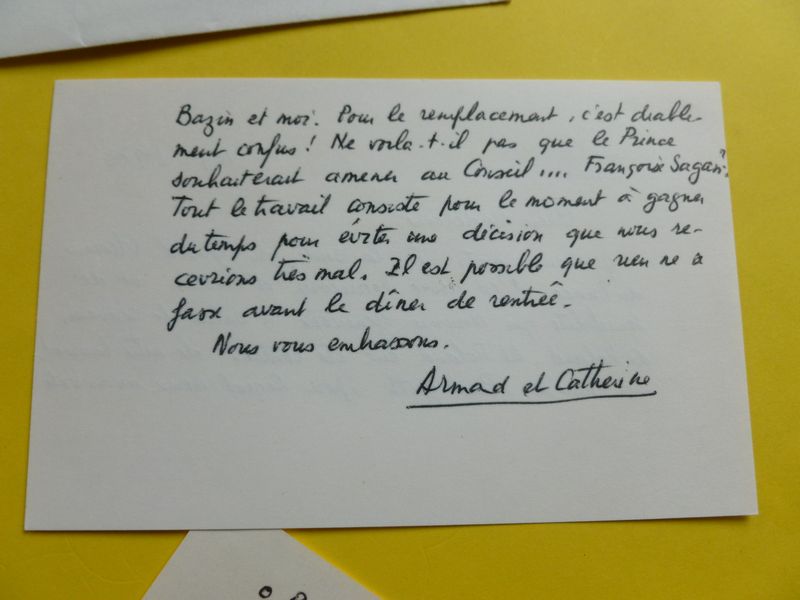 Bazin et moi. Pour le remplacement, c'est diable-
ment confus ! Ne voila-t-il pas que le Prince
souhaiterait amener au Conseil.... Françoise Sagan ?
Tout le travail consiste pour le moment à gagner
du temps pour éviter une décision que nous re-
cevrions très mal. Il est possible que rien ne se
fasse avant le dîner de rentrée.
Nous vous embrassons.
Armand et Catherine